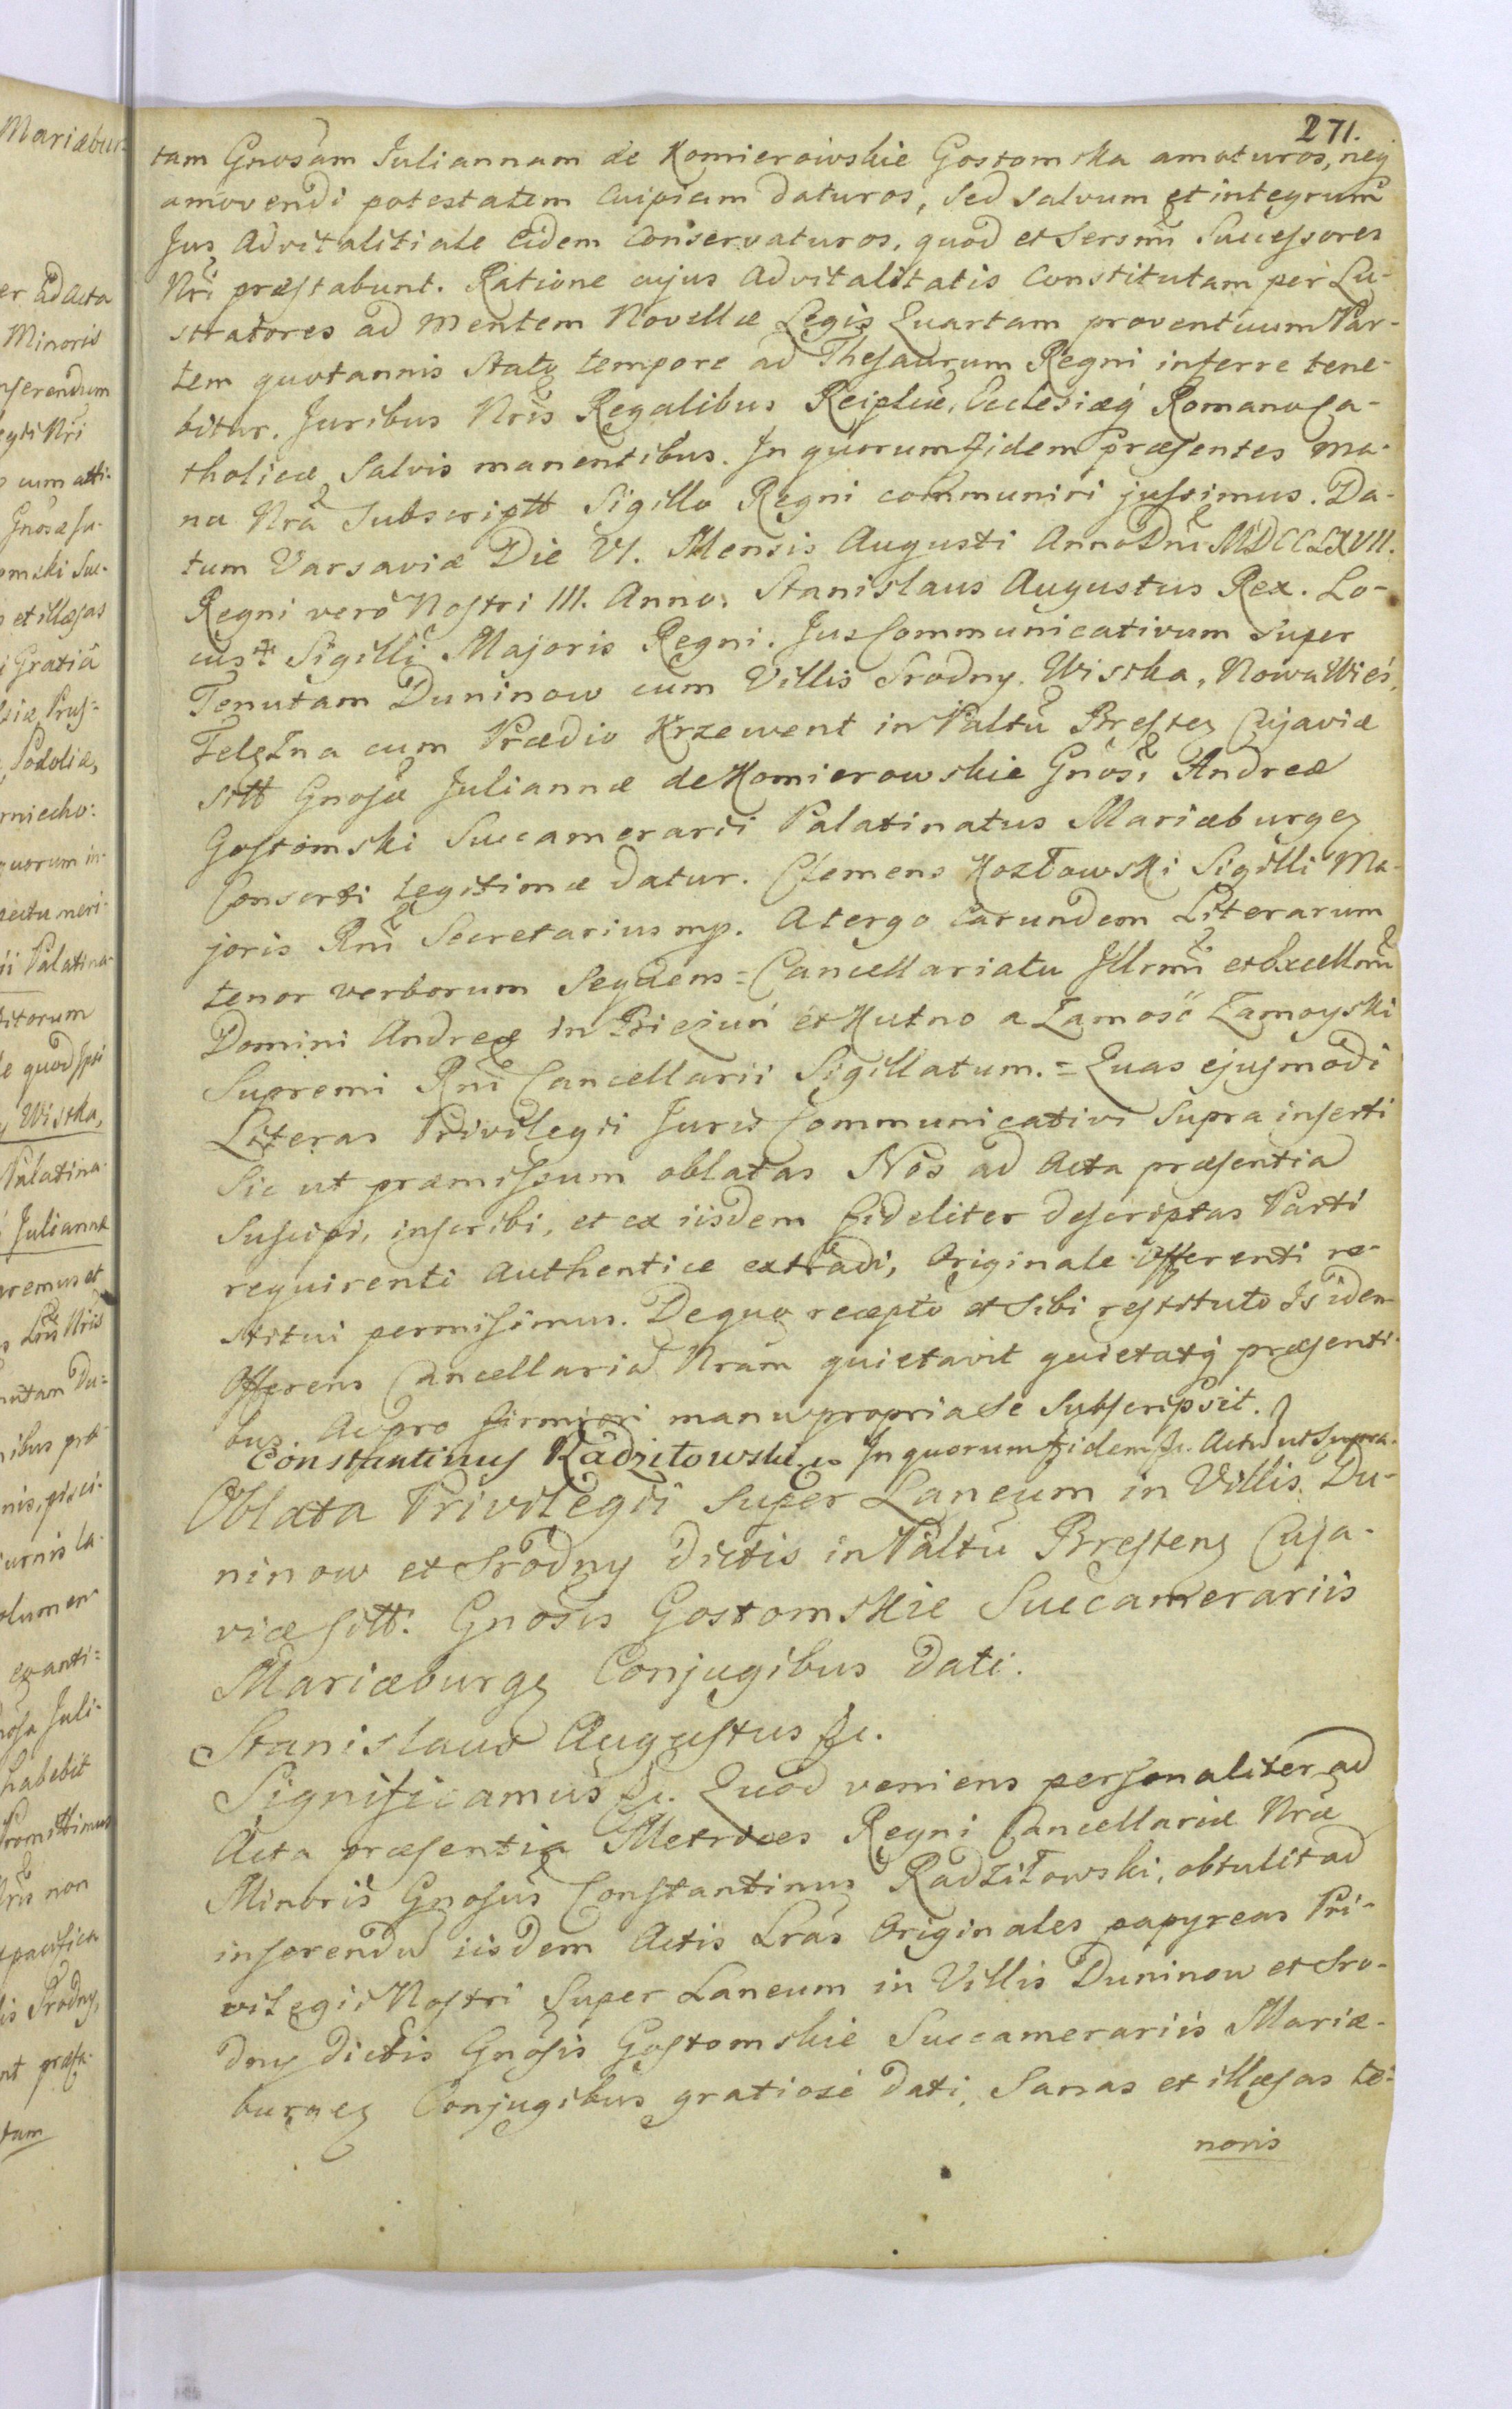 271.
tam Gnosam Juliannam de Komierowskie Gostomska amoturos, neq
amovendi potestatem cuipiam daturos, sed salvum et integrum
Jus Advitalitiale Eidem conservaturos, quod et Sersmi Successores
Nri præstabunt. Ratione cujus advitalitatis constitutam per Lu-
stratores ad mentem Novellæ Legis Quartam proventuum Par-
tem quotannis stato tempore ad Thesaurum Regni inferre tene-
bitur. Juribus Nris Regalibus Reiplcæ, Ecclesiæq Romano Ca-
tholicæ salvis manentibus. In quorum fidem præsentes ma-
nu Nra subscriptt Sigillo Regni communiri jussimus. Da-
tum Varsaviæ Die VI. Mensis Augusti Anno Dni MDCCLXVII.
Regni vero Nostri III. Anno. Stanislaus Augustus Rex. Lo-
cus Sigilli Majoris Regni. Jus Communicativum super
Tenutam Duninow cum Villis Srodny. Wistka, Nowa Wieś,
Telezna cum Prædio Krzewent in Paltu Brestez Cujaviæ
sitt Gnosæ Juliannæ de Komierowskie Gnosi Andreæ
Gostomski Succamerarii Palatinatus Mariæburgez
Consorti legitimæ datur. Clemens Kozłowski Sigilli Ma-
joris Rni Secretarius mp. A tergo earundem Literarum
tenor verborum seqdens = Cancellariatu Jllrmi et Excellmi
Domini Andreæ in Bieżuń et Kutno a Zamość Zamoyski
Supremi Rni Cancellarii Sigillatum. = Quas ejusmodi
Literas Privilegii Juris Communicativi supra inserti
sic ut præmissum oblatas Nos ad Acta præsentia
suscipi, inscribi, et ex iisdem fideliter descriptas Parti
requirenti authentice extradi, Originale Offerenti re-
stitui permisimus. De quo recepto et sibi restituto Jsidem
Offerens Cancellaria Nram quietavit quietatq præsenti-
bus. Ac pro firmiori manu propria se subscripsit.
Constantinus Radziłowski. In quorum fidem &c. Actu ut supra.
Oblata Privilegii super Laneum in Villis Du-
ninow et Srodny dictis in Paltu Brestenz Cuja-
viæ sitt. Gnosis Gostomskie Succamerariis
Mariæburgz Conjugibus dati.
Stanislaus Augustus &c.
Significamus &c. Quod veniens personaliter ad
Acta præsentia Metrices Regni Cancellariæ Nræ
Minoris Gnosus Constantinus Radziłowski, obtulit ad
inserendu iisdem Actis Lras Originales papyreas Pri-
vilegii Nostri super Laneum in Villis Duninow et Sro-
dny dictis Gnosis Gostomskie Succamerariis Mariæ-
burgez Conjugibus gratiose dati, sanas et illæsas te-
noris